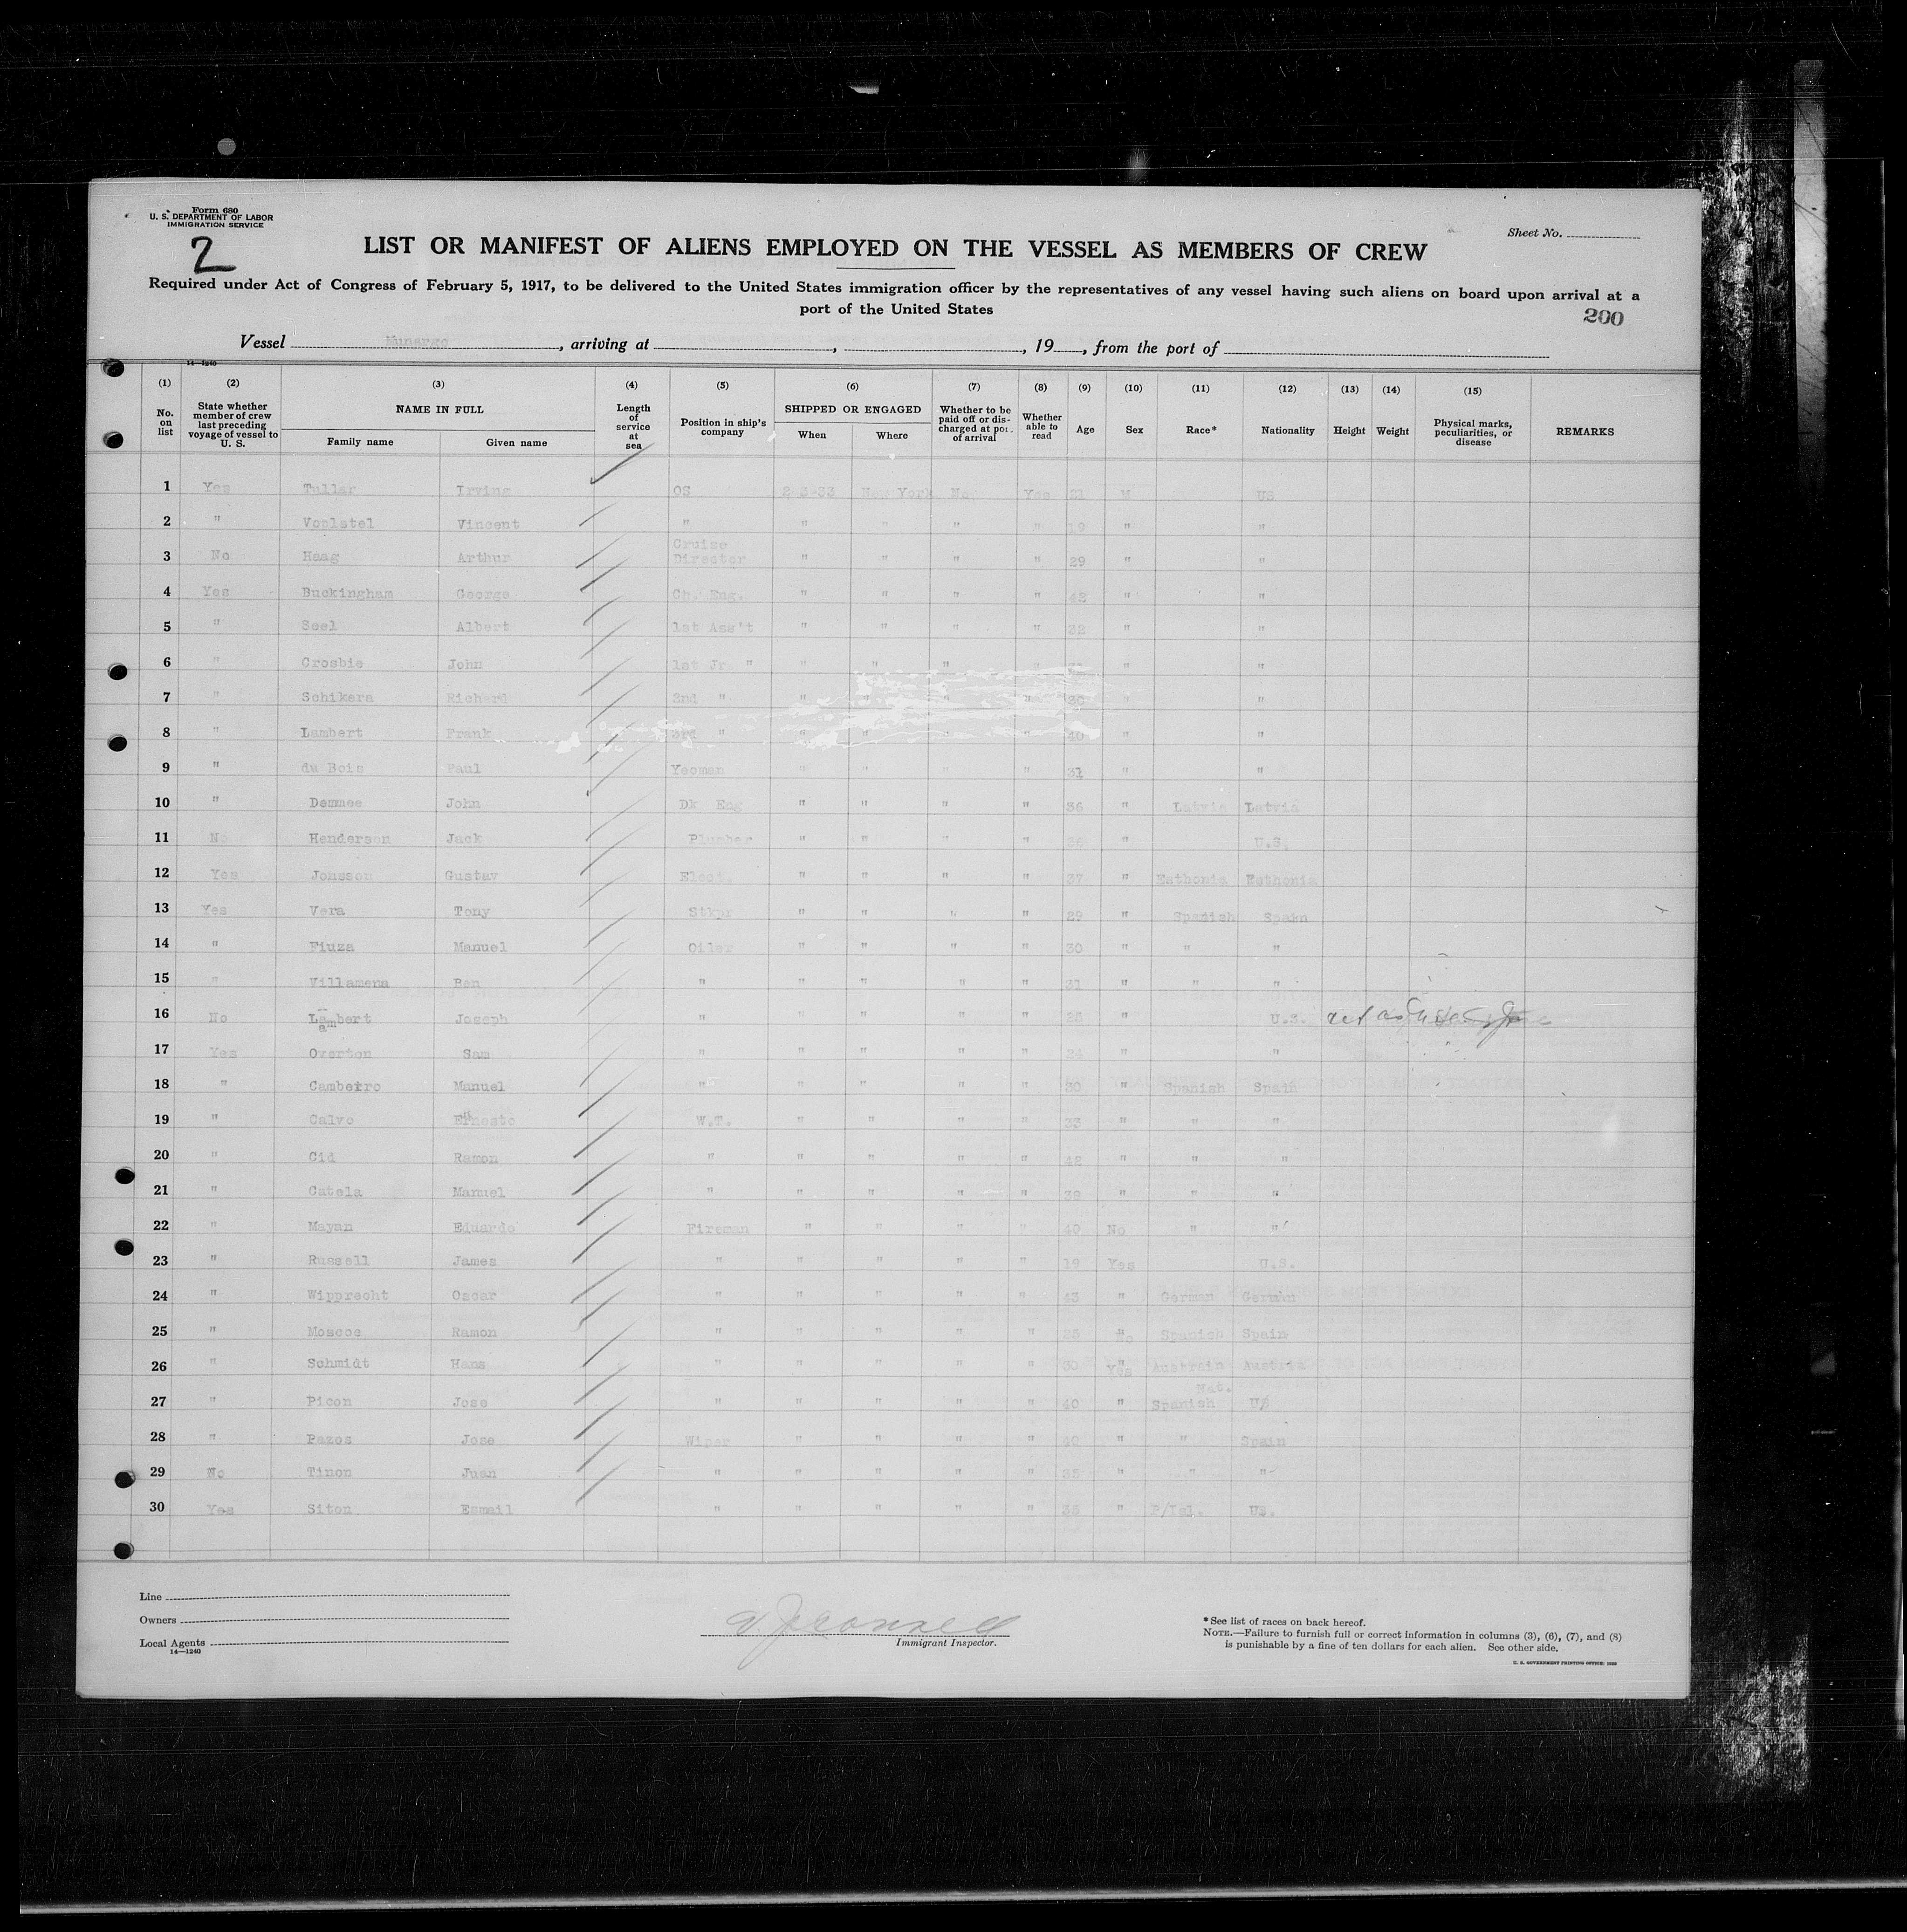 Form 680
U. S. DEPARTMENT OF LABOR
IMMIGRATION SERVICE
2
Sheet No.
LIST OR MANIFEST OF ALIENS EMPLOYED ON THE VESSEL AS MEMBERS OF CREW
Required under Act of Congress of February 5, 1917, to be delivered to the United States immigration officer by the representatives of any vessel having such aliens on board upon arrival at a
port of the United States
200
Vessel Munargo, arriving at , , 19 , from the port of
14—1240
(1) (2) (3) (4) (5) (6) (7) (8) (9) (10) (11) (12) (13) (14) (15)
No. on list State whether member of crew last preceding voyage of vessel to U. S. NAME IN FULL Family name Given name Length of service at sea Position in ship's company SHIPPED OR ENGAGED When Where Whether to be paid off or discharged at port of arrival Whether able to read Age Sex Race* Nationality Height Weight Physical marks, peculiarities, or disease REMARKS
1 Yes Tullar Irving OS 2-3-33 New York No Yes 21 M US
2 " Voolstel Vincent " " " " " 19 " "
3 No Haag Arthur Cruise Director " " " " 29 " "
4 Yes Buckingham George Ch. Eng. " " " " 42 " "
5 " Seel Albert 1st Ass't " " " " 32 " "
6 " Crosbie John 1st Jr. " " " " " " "
7 " Schikera Richard " " " " " 30 " "
8 " Lambert Frank 3rd " " " " " 40 " "
9 " du Bois Paul Yeoman " " " " " "
10 " Demmee John Dk Eng " " " " 36 " Latvia Latvia
11 No Henderson Jack Plumber " " " " 36 " U.S.
12 Yes Jonsson Gustav Elect. " " " " 37 " Esthonia Esthonia
13 Yes Vera Tony Stkpr " " " " 29 " Spanish Spain
14 " Fiuza Manuel Oiler " " " " 30 " " "
15 " Villamena Ben " " " " " 31 " " "
16 No Lambert Joseph " " " " " " U.S.
17 Yes Overton Sam " " " " " 24 " "
18 " Cambeiro Manuel " " " " " 30 " Spanish Spain
19 " Calvo Ernesto W.T. " " " " 33 " " "
20 " Cid Ramon " " " " " 42 " " "
21 " Catela Manuel " " " " " 38 " " "
22 " Mayan Eduardo Fireman " " " " 40 No " "
23 " Russell James " " " " " 19 Yes U.S.
24 " Wipprecht Oscar " " " " " 43 " German German
25 " Moscoe Ramon " " " " " No Spanish Spain
26 " Schmidt Hans " " " " " 30 Yes Austrain Austria
27 " Picon Jose " " " " " 40 " Spanish Nat. US
28 " Pazos Jose Wiper " " " " 40 " " Spain
29 No Tinon Juan " " " " " 35 " " "
30 Yes Siton Esmail " " " " " 38 " P/Isl. US.
Line
Owners
Local Agents
14—1240
Immigrant Inspector.
*See list of races on back hereof.
NOTE.—Failure to furnish full or correct information in columns (3), (6), (7), and (8)
is punishable by a fine of ten dollars for each alien. See other side.
U. S. GOVERNMENT PRINTING OFFICE: 1932